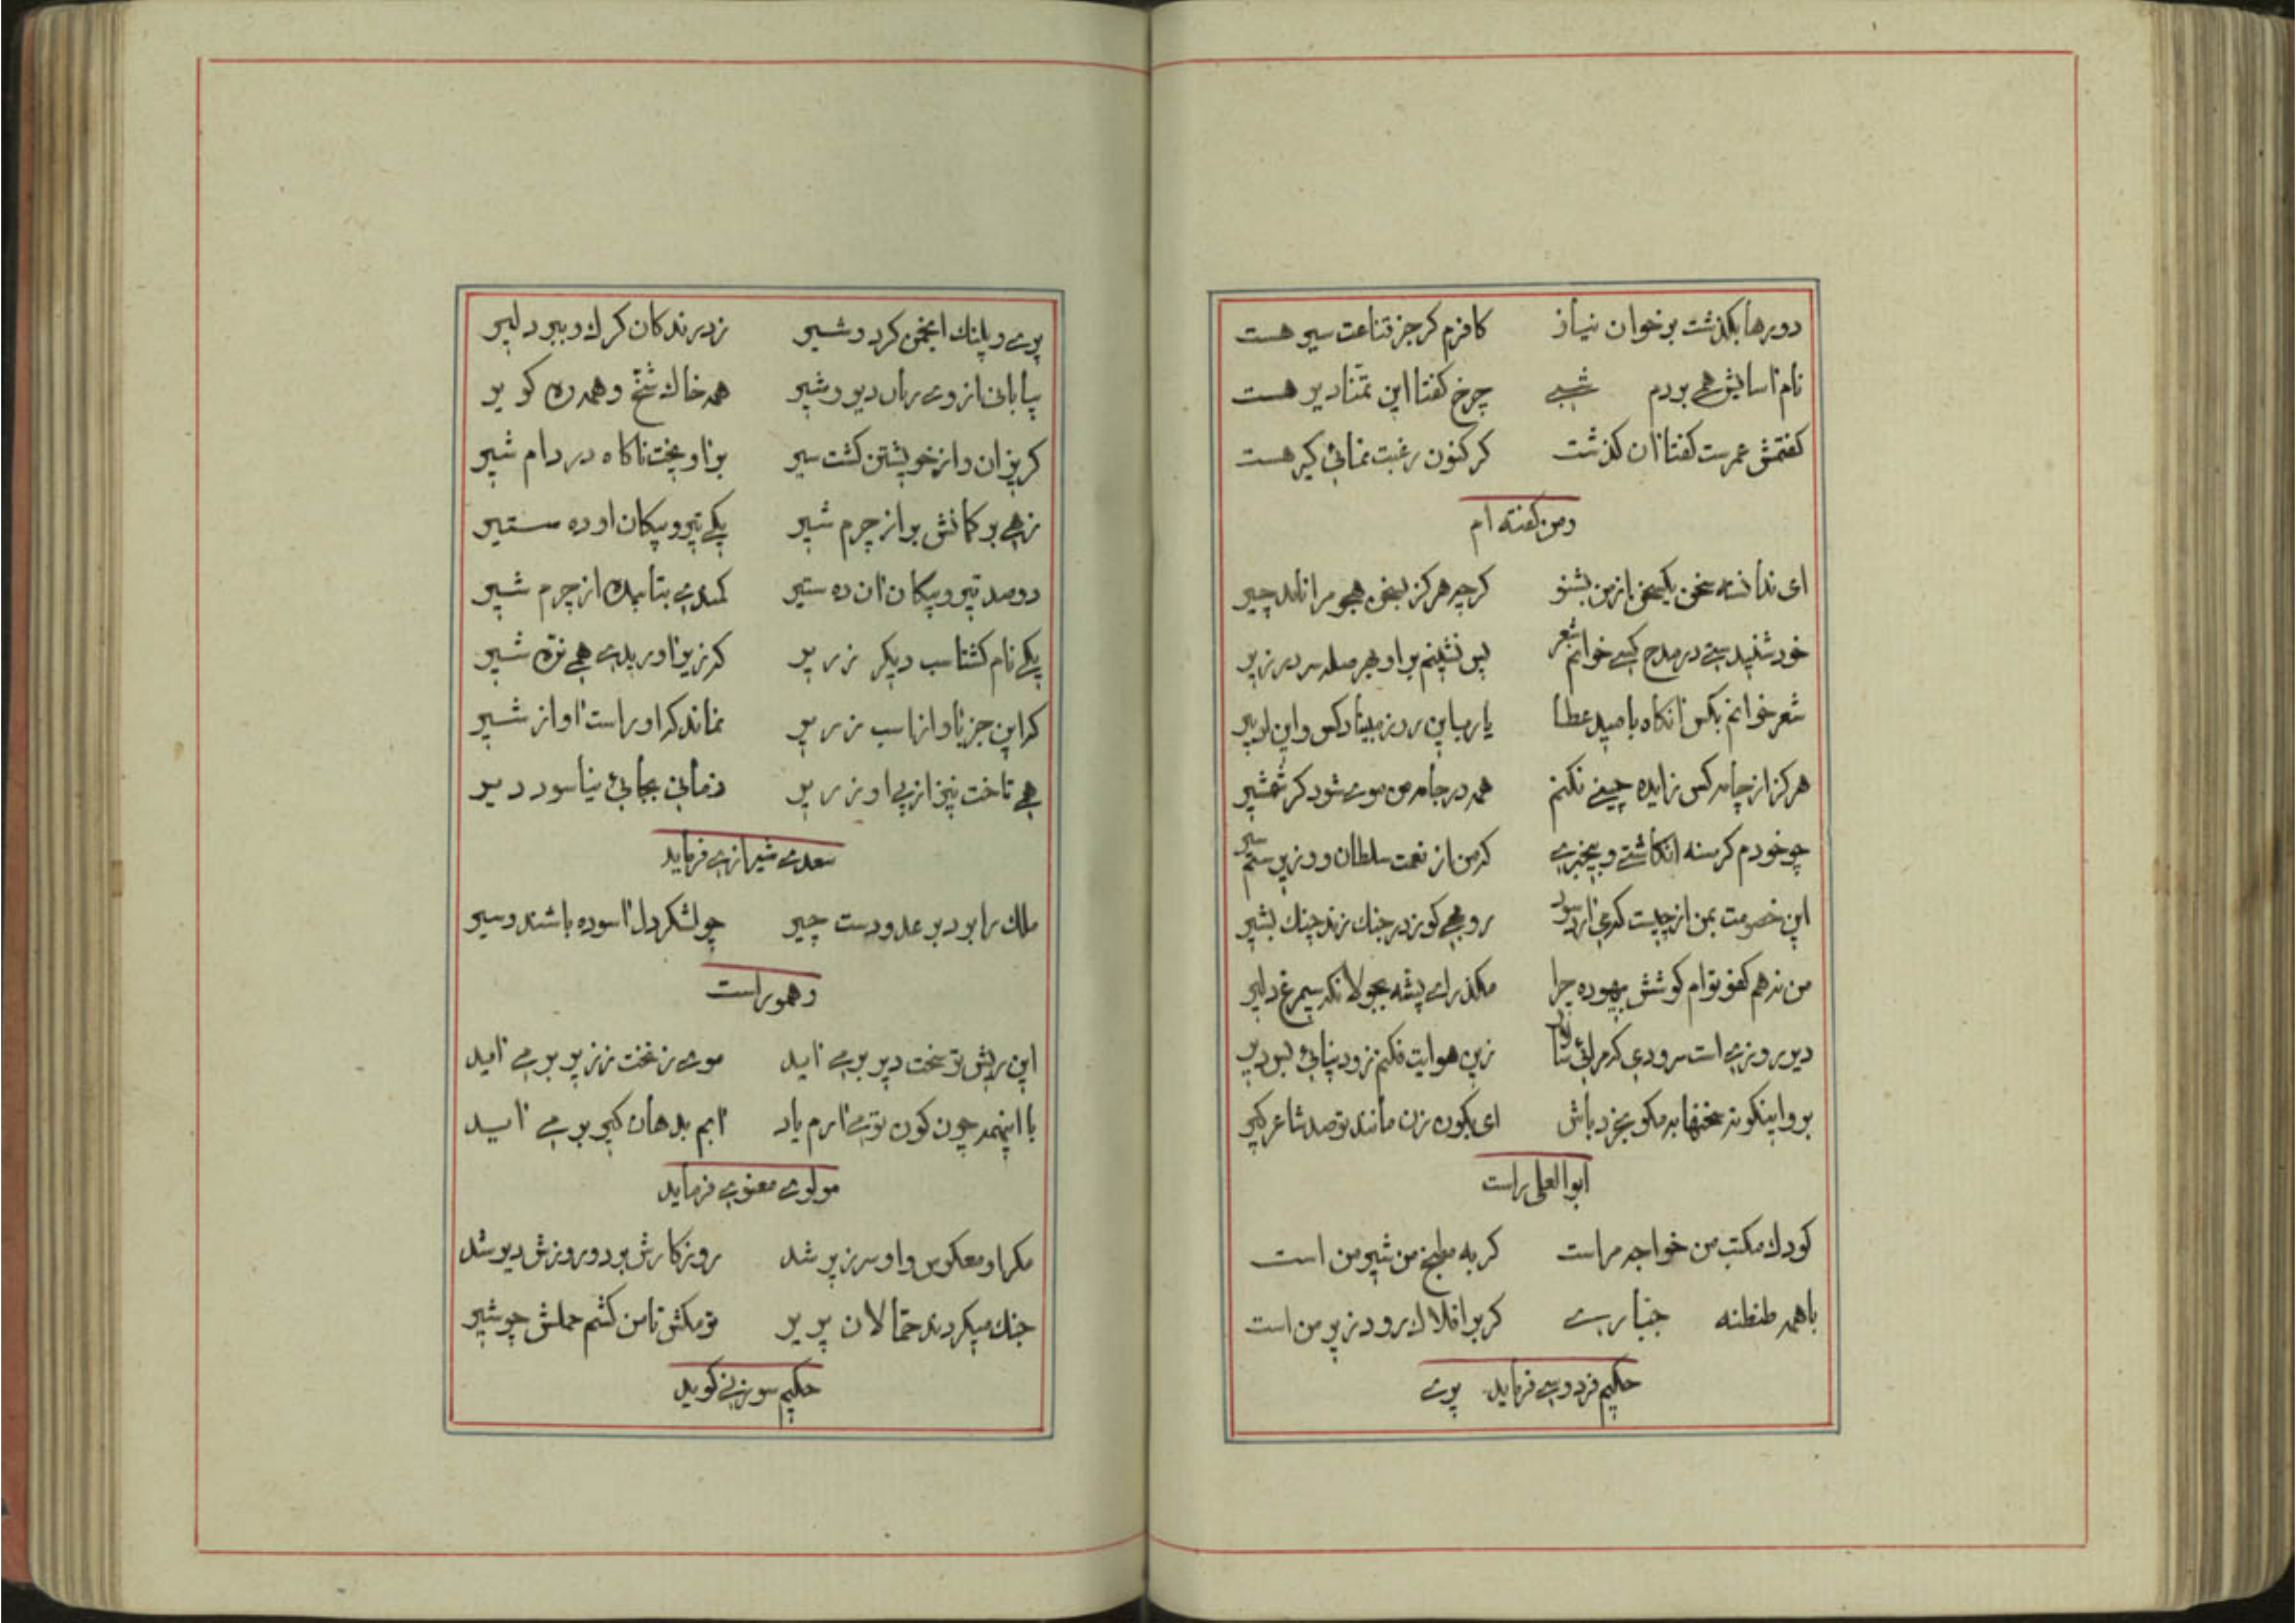 دورها بگذشت بر خوان نیاز کافرم گر جز قناعت سیر هست
نام آسایش همی بردم شبی چرخ گفتا این تمنا دیر هست
گفتمش عمرست گفتا آن گذشت گر کنون رغبت نمائی گیر هست
ومن گفته ام
ای ندانسته سخن یکسخن از من بشنو گرچه هرگز بسخن همچو مرا ناید چیر
خود شنیدستی در مدح کسی خوانم شعر پس نشینم بر او بهر صله سر در زیر
شعر خوانم بکس آنگاه بامید عطا یا رب این روز مبیناد کس و این
هرگز از جامه کس زایده چینی نکنم همه در جامه من موی شود گر شمشیر
چو خودم گرسنه انگاشتی و بیخبری که من از نعمت سلطان و وزیرستم سیر
این خصومت بمن از چیست که می نارد سود روبهی کو زدر جنگ زند چنگ بشیر
من نه هم کفو توام کوشش بیهوده چرا مگذر ای پشه بجولانگه سیمرغ دلیر
دیر و زی است سرودی که مرائی زین هوایت فکنم زود نپائی بس دیر
برو اینگونه سخنها به مگو بخرد باش ای بکون زن مانند تو صد شاعر گیر
ابوالعلی راست
کودک مکتب من خواجه مراست گربه مطبخ من شیر من است
با همه طنطنه جباری گر بر افلاک رود زیر من است
حکیم فردوسی فرماید پری
پری و پلنگ انجمن کرد و شیر ز درندگان گرگ و ببر دلیر
بیابانی از وی رمان دیو و شیر همه خاک شخ و همه ره کویر
گریزان و از خویشتن گشت سیر برآویخت ناگاه در دام شیر
زهی بر کمانش بر از چرم شیر یکی تیر و پیکان او ده ستیر
دو صد تیر و پیکان آن ده ستیر کمندی بتابیده از چرم شیر
یکی نام گشتاسب دیگر زریر که زیر آوریدی همی نره شیر
که این جز باواز اسب زریر نماند که او راست آواز شیر
همی تاخت نیز از پی او زریر زمانی بجائی نیاسود دیر
سعدی شیرازی فرماید
ملک را بود بر عدو دست چیر چو لشکر دل آسوده باشند و سیر
وهموراست
این ریش تو سخت دیر برمی آید موی زنخت نزیر برمی آید
با اینهمه چون کون توی آرم یاد آبم بدهان کیر برمی آید
مولوی معنوی فرماید
مکر او معکوس و او سرزیر شد روزگارش برد و روزش دیر شد
جنگ میکردند حمالان پریر تو مکش تا من کشم حملش چو شیر
حکیم سوزنی گوید